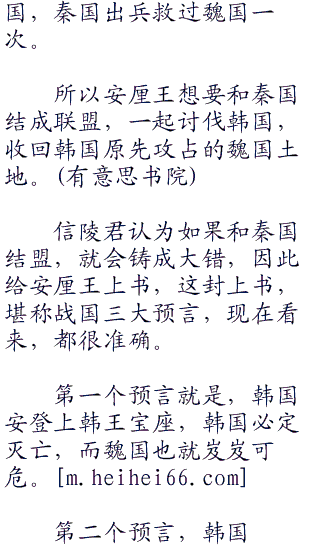 国，秦国出兵救过魏国一
次。
所以安厘王想要和秦国
结成联盟，一起讨伐韩国，
收回韩国原先攻占的魏国土
地。(有意思书院)
信陵君认为如果和秦国
结盟，就会铸成大错，因此
给安厘王上书，这封上书，
堪称战国三大预言，现在看
来，都很准确。
第一个预言就是，韩国
安登上韩王宝座，韩国必定
灭亡，而魏国也就岌岌可
危。[m.heihei66.com]
第二个预言，韩国